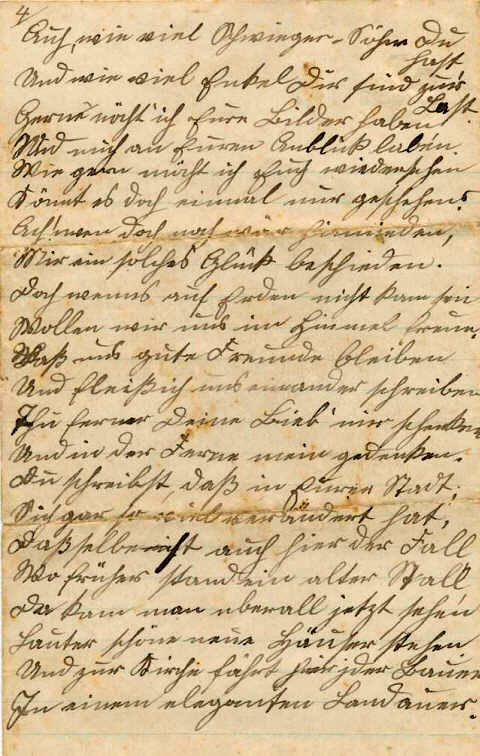 4/
Auch, wie viel Schwieger-Söhne Du
hast
Und wie viel Enkel Dir sind zur
Last.
Gerne möcht ich Eure Bilder haben
Und mich an Euren Anblick laben.
Wie gern möcht ich Euch wiedersehen
Könnt es doch einmal nur geschehen.
Ach! wen doch noch wär hiernieden,
Mir ein solches Glück beschieden.
Doch wenns auf Erden nicht kann sein
Wollen wir uns im Himmel freun.
Laß uns gute Freunde bleiben
Und fleißich uns einander schreiben
Thu ferner Deine Lieb' mir schenken
Und in der Ferne mein gedenken.
Du schreibst, daß in Eurer Stadt,
Sich gar so viel verändert hat,
Daßselbe ist auch hier der Fall
Wo früher stand ein alter Stall
Da kann man uberall jetzt sehen
Lauter schöne neue Häuser stehen
Und zur Kirche fährt hier jder Bauer
In einem eleganten Landauer.